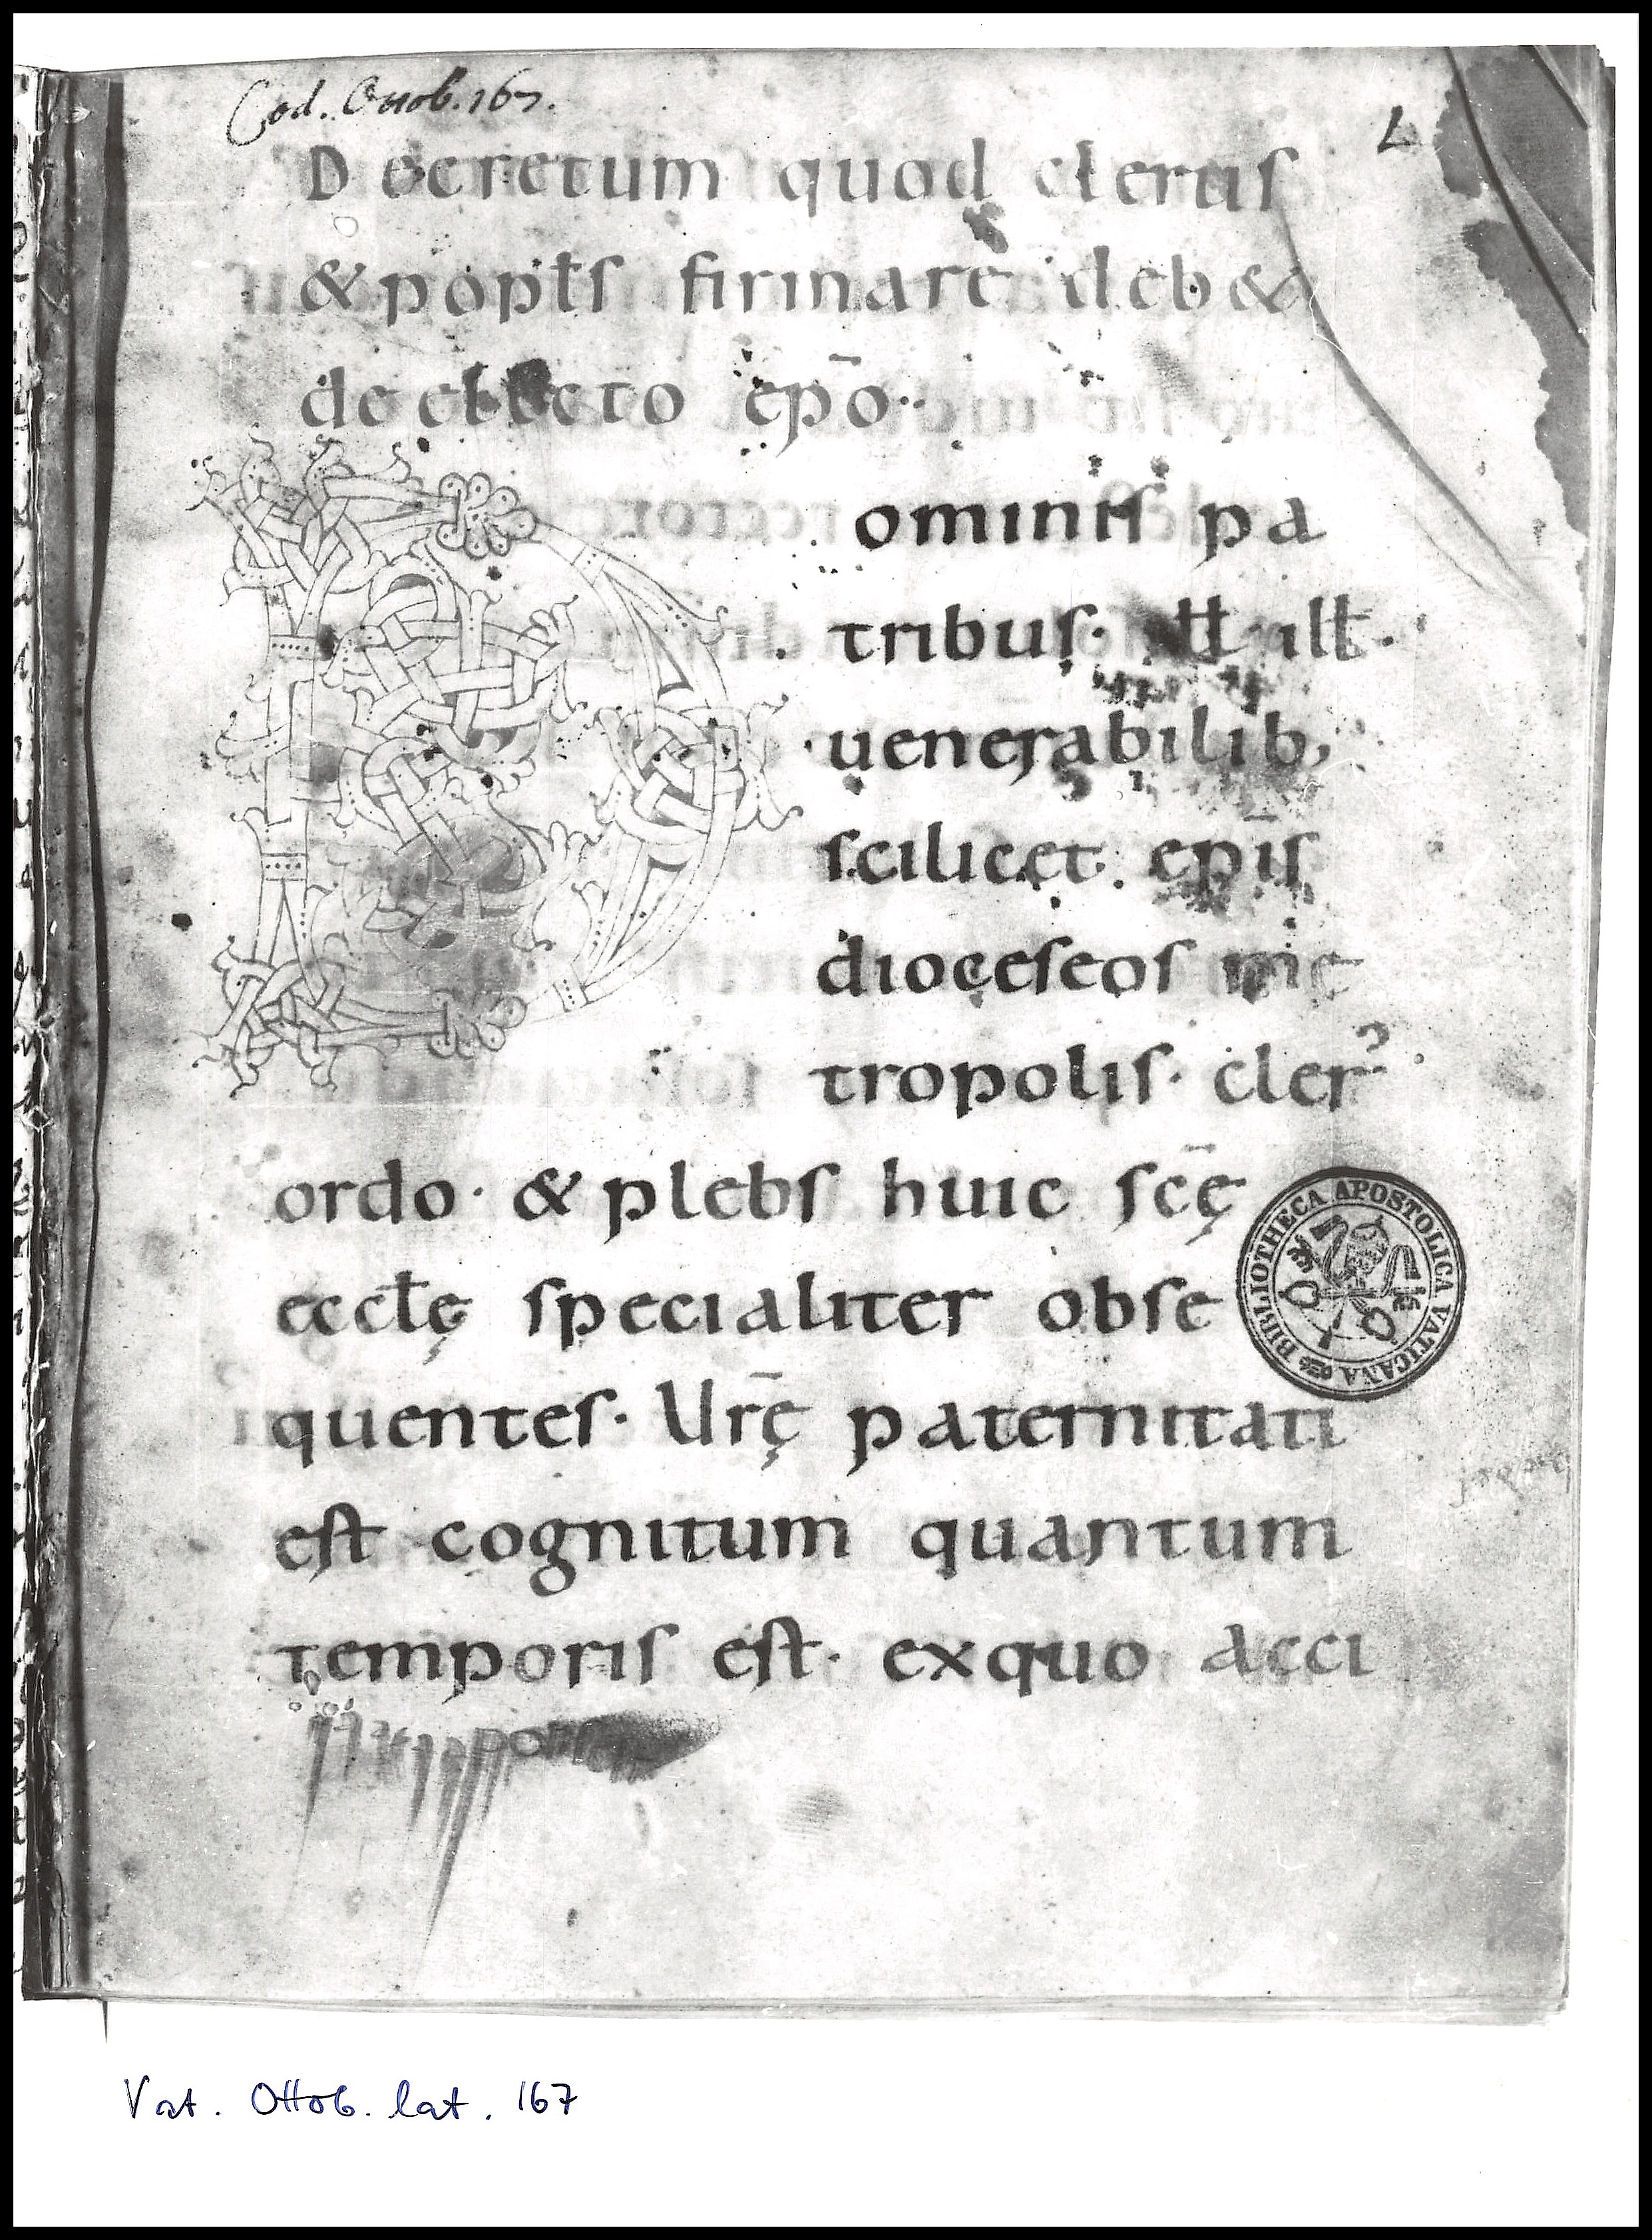 Cod. Ottob. 167.
Decretum quod clerus
& popł's firmare deb&
de electo ep̄o·
Dominis pa
tribus· iłł iłł·
uenerabilib;
scilicet ep̄is
dioceseos me
tropolis· cler᾽
ordo· & plebs huic sc̄ę
eccłę specialiter obse
quentes· Ur̄ę paternitati
est cognitum quantum
temporis est· exquo acci
BIBLIOTHECA APOSTOLICA VATICANA
Vat. Ottob. lat. 167